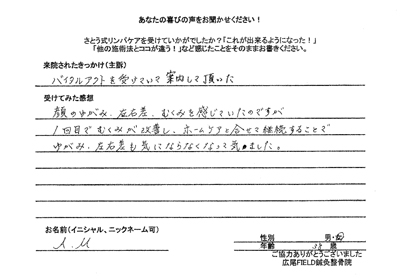 あなたの喜びの声をお聞かせください！
さとう式リンパケアを受けていかがでしたか？「これが出来るようになった！」
「他の施術法とココが違う！」など感じたことをそのままお書きください。
来院されたきっかけ（主訴）
バイタルアクトを受けていて案内して頂いた
受けてみた感想
顔のゆがみ、左右差、むくみを感じていたのですが
1回目でむくみが改善し、ホームケアと合せて継続することで
ゆがみ、左右差も気にならなくなって来ました。
お名前（イニシャル、ニックネーム可）
性別 男・女
A.M 年齢 38 歳
ご協力ありがとうございました
広尾FIELD鍼灸整骨院